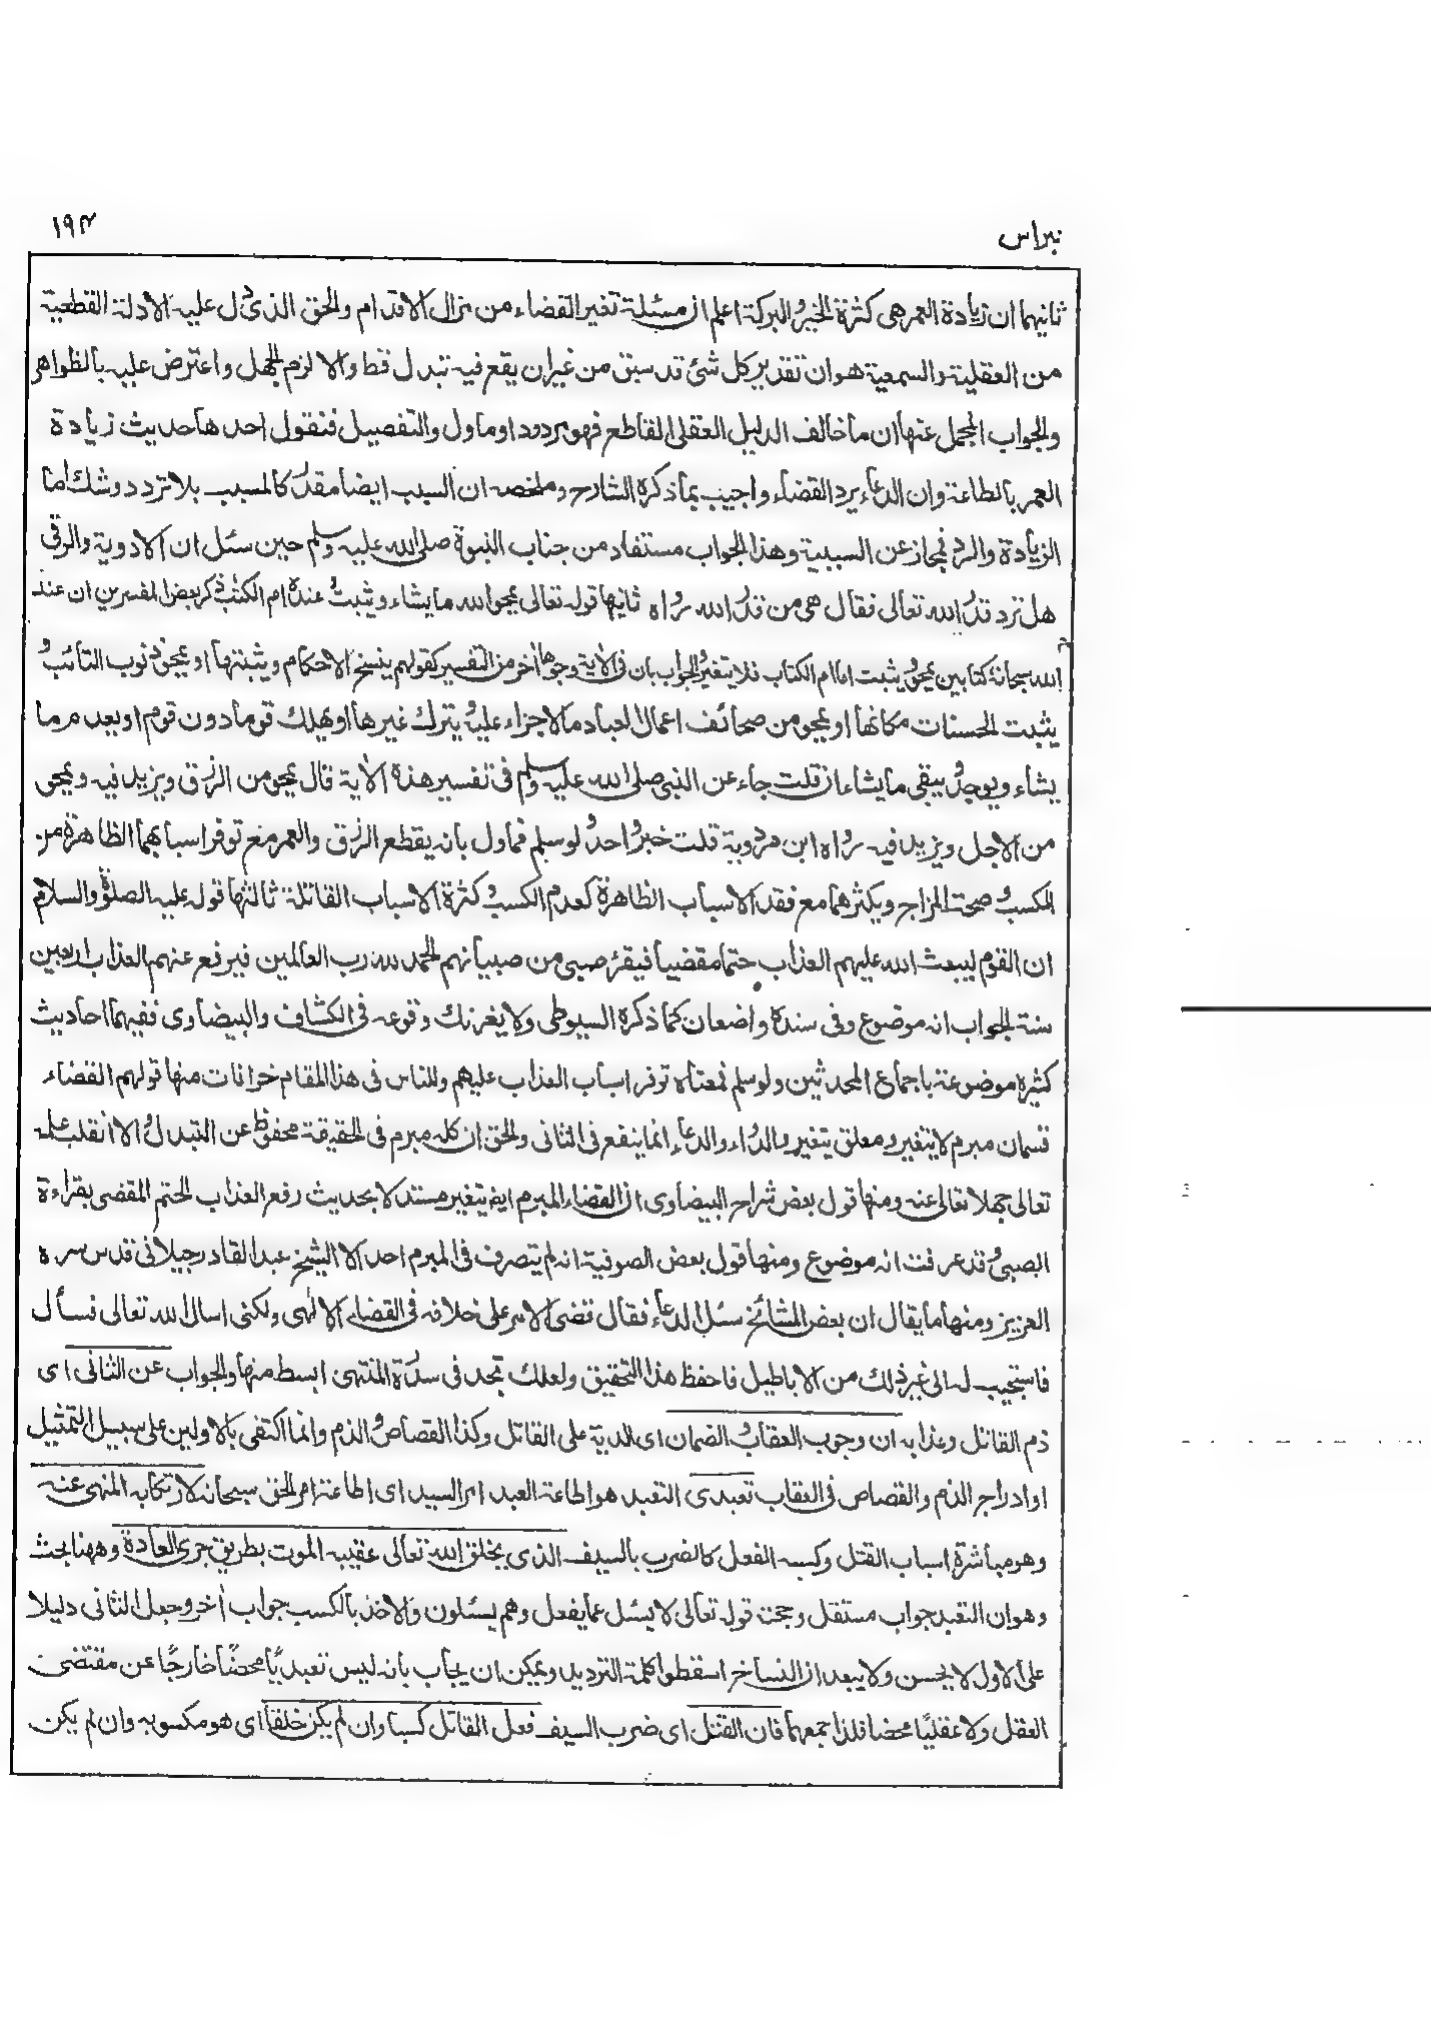 نبراس
١٩٣
ثانيهما ان زيادة العمر هى كثرة الخير والبركة اعلم ان مسئلة تغير القضاء من مزال الاقدام والحق الذى دل عليه الادلة القطعية
من العقلية والسمعية هو ان تقدير كل شئ قد سبق من غير ان يقع فيه تبدل قط والا لزم الجهل واعترض عليه بالظواهر
والجواب المجمل عنها ان ما خالف الدليل العقلى القاطع فهو مردود او ماول والتفصيل فنقول احدها حديث زيادة
العمر بالطاعة وان الدعاء يرد القضاء واجيب بما ذكره الشارح وملخصه ان السبب ايضا مقدر كالمسبب بلا تردد وشك اما
الزيادة والرد فمجاز عن السببية وهذا الجواب مستفاد من جناب النبوة صلى الله عليه وسلم حين سئل ان الادوية والرقى
هل ترد قدر الله تعالى فقال هى من قدر الله رواه ثانيها قوله تعالى يمحوا الله ما يشاء ويثبت وعنده ام الكتٰب ذكر بعض المفسرين ان عند
الله سبحانه كتابين يمحو ويثبت اما ام الكتاب فلا يتغير والجواب بان فى الاية وجوها أخر من التفسير كقولهم ينسخ الاحكام ويثبتها او يمحو ذنوب التائب و
يثبت الحسنات مكانها او يمحو من صحائف اعمال العباد ما لا جزاء عليه ويترك غيرها او يهلك قوما دون قوم او يعدم ما
يشاء ويوجد ويبقى ما يشاء ان قلت جاء عن النبى صلى الله عليه وسلم فى تفسير هذه الأية قال يمحو من الرزق ويزيد فيه ويمحو
من الاجل ويزيد فيه رواه ابن مردوية قلت خبر واحد ولو سلم فماول بانه يقطع الرزق والعمر مع توفر اسبابهما الظاهرة من
المكسب وصحة المزاج ويكثرهما مع فقد الاسباب الظاهرة كعدم الكسب وكثرة الاسباب القاتلة ثالثها قوله عليه الصلوة والسلام
ان القوم ليبعث الله عليهم العذاب حتما مقضيا فيقرء صبى من صبيانهم الحمد لله رب العالمين فيرفع عنهم العذاب اربعين
سنة الجواب انه موضوع وفى سنده واضعان كما ذكره السيوطى ولا يغرنك وقوعه فى الكشاف والبيضاوى ففيهما احاديث
كثيرة موضوعة باجماع المحدثين ولو سلم فمعناه توفر اسباب العذاب عليهم وللناس فى هذا المقام خرافات منها قولهم القضاء
قسمان مبرم لا يتغير ومعلق يتغير والدواء والدعاء انما ينفع فى الثانى والحق ان كله مبرم فى الحقيقة محفوظ عن التبدل والا انقلب علمه
تعالى جهلا تعالى عنه ومنها قول بعض شراح البيضاوى ان القضاء المبرم ايضا يتغير مستدلا بحديث رفع العذاب الحتم المقضى بقراءة
الصبى وقد عرفت انه موضوع ومنها قول بعض الصوفية انه لم يتصرف فى المبرم احد الا الشيخ عبد القادر جيلانى قدس سره
العزيز ومنها ما يقال ان بعض المشائخ سئل الدعاء فقال قضى الامر على خلافه فى القضاء الالٰهى ولكنى اسال الله تعالى فسأل
فاستجيب له الى غير ذلك من الاباطيل فاحفظ هذا التحقيق ولعلك تجد فى سدرة المنتهى ابسط منها والجواب عن الثانى اى
ذم القاتل وعذابه ان وجوب العقاب والضمان اى الدية على القاتل وكذا القصاص والذم وانما اكتفى بالاولين على سبيل التمثيل
او ادراج الذم والقصاص فى العقاب تعبدى التعبد هو اطاعة العبد امر السيد اى اطاعة امر الحق سبحانه لارتكابه المنهى عنه
وهو مباشرة اسباب القتل وكسبه الفعل كالضرب بالسيف الذى يخلق الله تعالى عقيبه الموت بطريق جرى العادة وههنا بحث
وهو ان التعبد جواب مستقل وحجته قوله تعالى لا يسئل عما يفعل وهم يسئلون والاخذ بالكسب جواب أخر وجعل الثانى دليلا
على الاول لا يحسن ولا يبعد ان النساخ اسقطوا كلمة الترديد ويمكن ان يجاب بانه ليس تعبديًا محضًا خارجًا عن مقتضى
العقل ولا عقليًا محضا فلذا جمعهما فان القتل اى ضرب السيف فعل القاتل كسبا وان لم يكن خلقا اى هو مكسوبه وان لم يكن